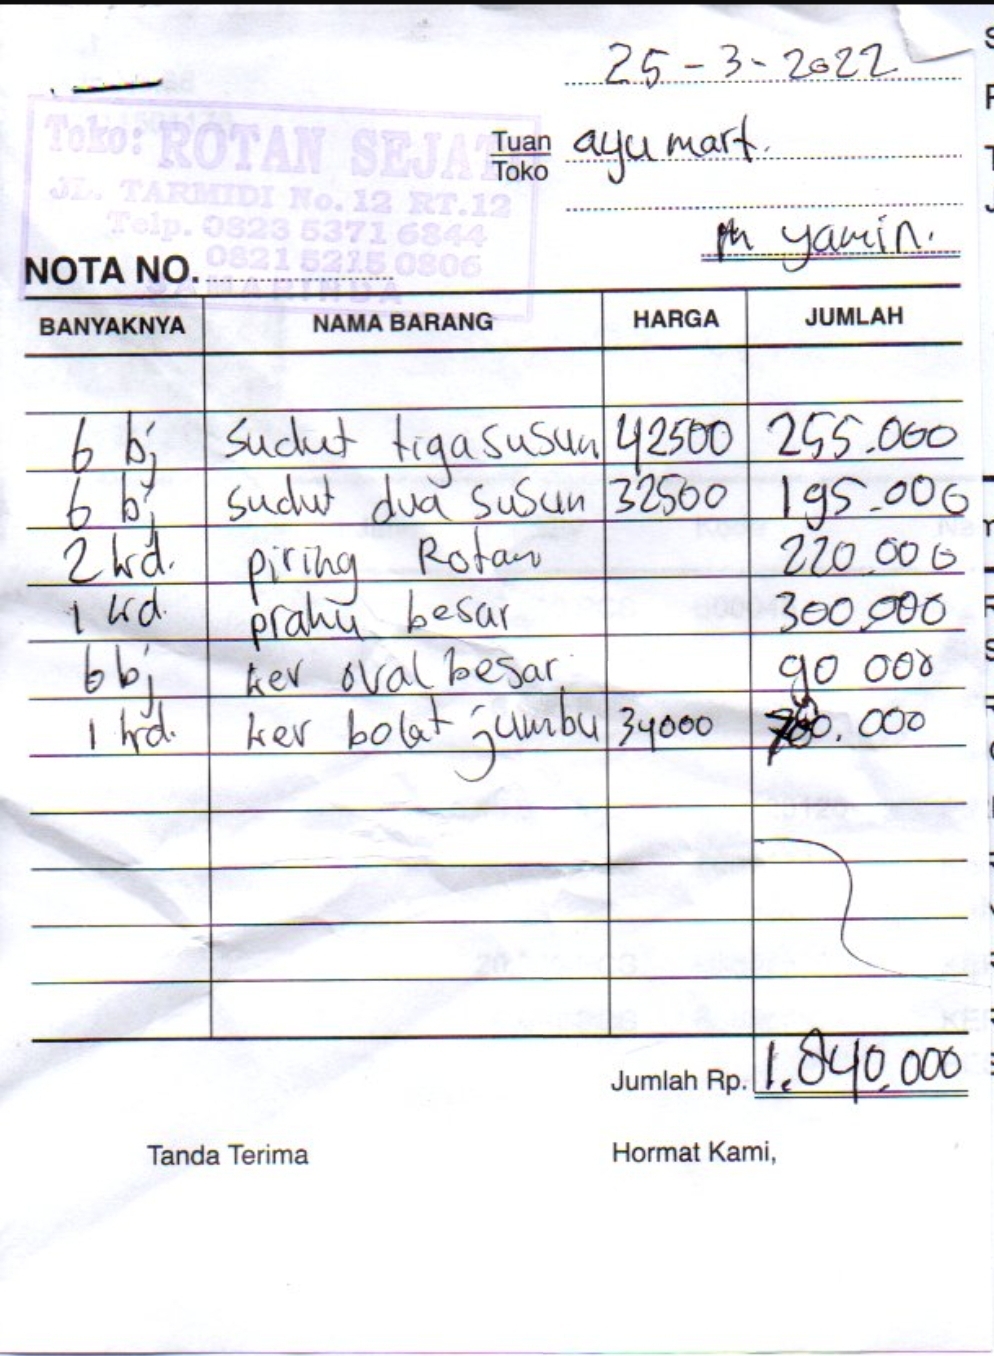 25-3-2022
Toko: ROTAN SEJATI
JL. TARMIDI No. 12 RT.12
Telp. 0823 5371 6844
0821 5215 0806
SAMARINDA
Tuan ayu mart.
Toko
m yamin.
NOTA NO.
BANYAKNYA NAMA BARANG HARGA JUMLAH
6 bj sudut tiga susun 42500 255.000
6 bj sudut dua susun 32500 195.000
2 krd. piring Rotan 220.000
1 krd. prahu besar 300.000
6 bj ker oval besar 90 000
1 krd. ker bolat jumbu 34000
Jumlah Rp. 1.840.000
Tanda Terima Hormat Kami,